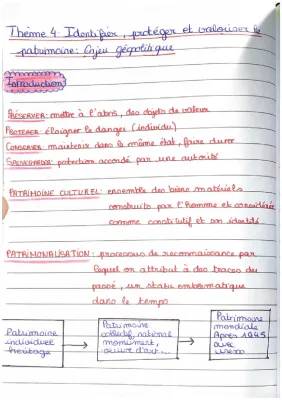 Thème 4: Identifier, protéger et valoriser le
patrimoine: Enjeu géopolitique
Introduction
PRÉSERVER: mettre à l'abris, des objets de valeur
PROTEGER: éloigner le danger (individu)
CONSERVER: maintenir dans le même état, faire durer
SAUVEGARDER: protection accordé par une autorité
PATRIMOINE CULTUREL: ensemble des biens matériels
construits par l'Homme et considérée
comme constitutif et son identité
PATRIMONIALISATION: processus de reconnaissance par
lequel on attribut à des traces du
passé, un statu emblématique
dans le temps
Patrimoine
individuel
héritage
Patrimoine
collectif, national
monument,
œuvre d'art...
Patrimoine
mondiale
Après 1945
avec
unesco